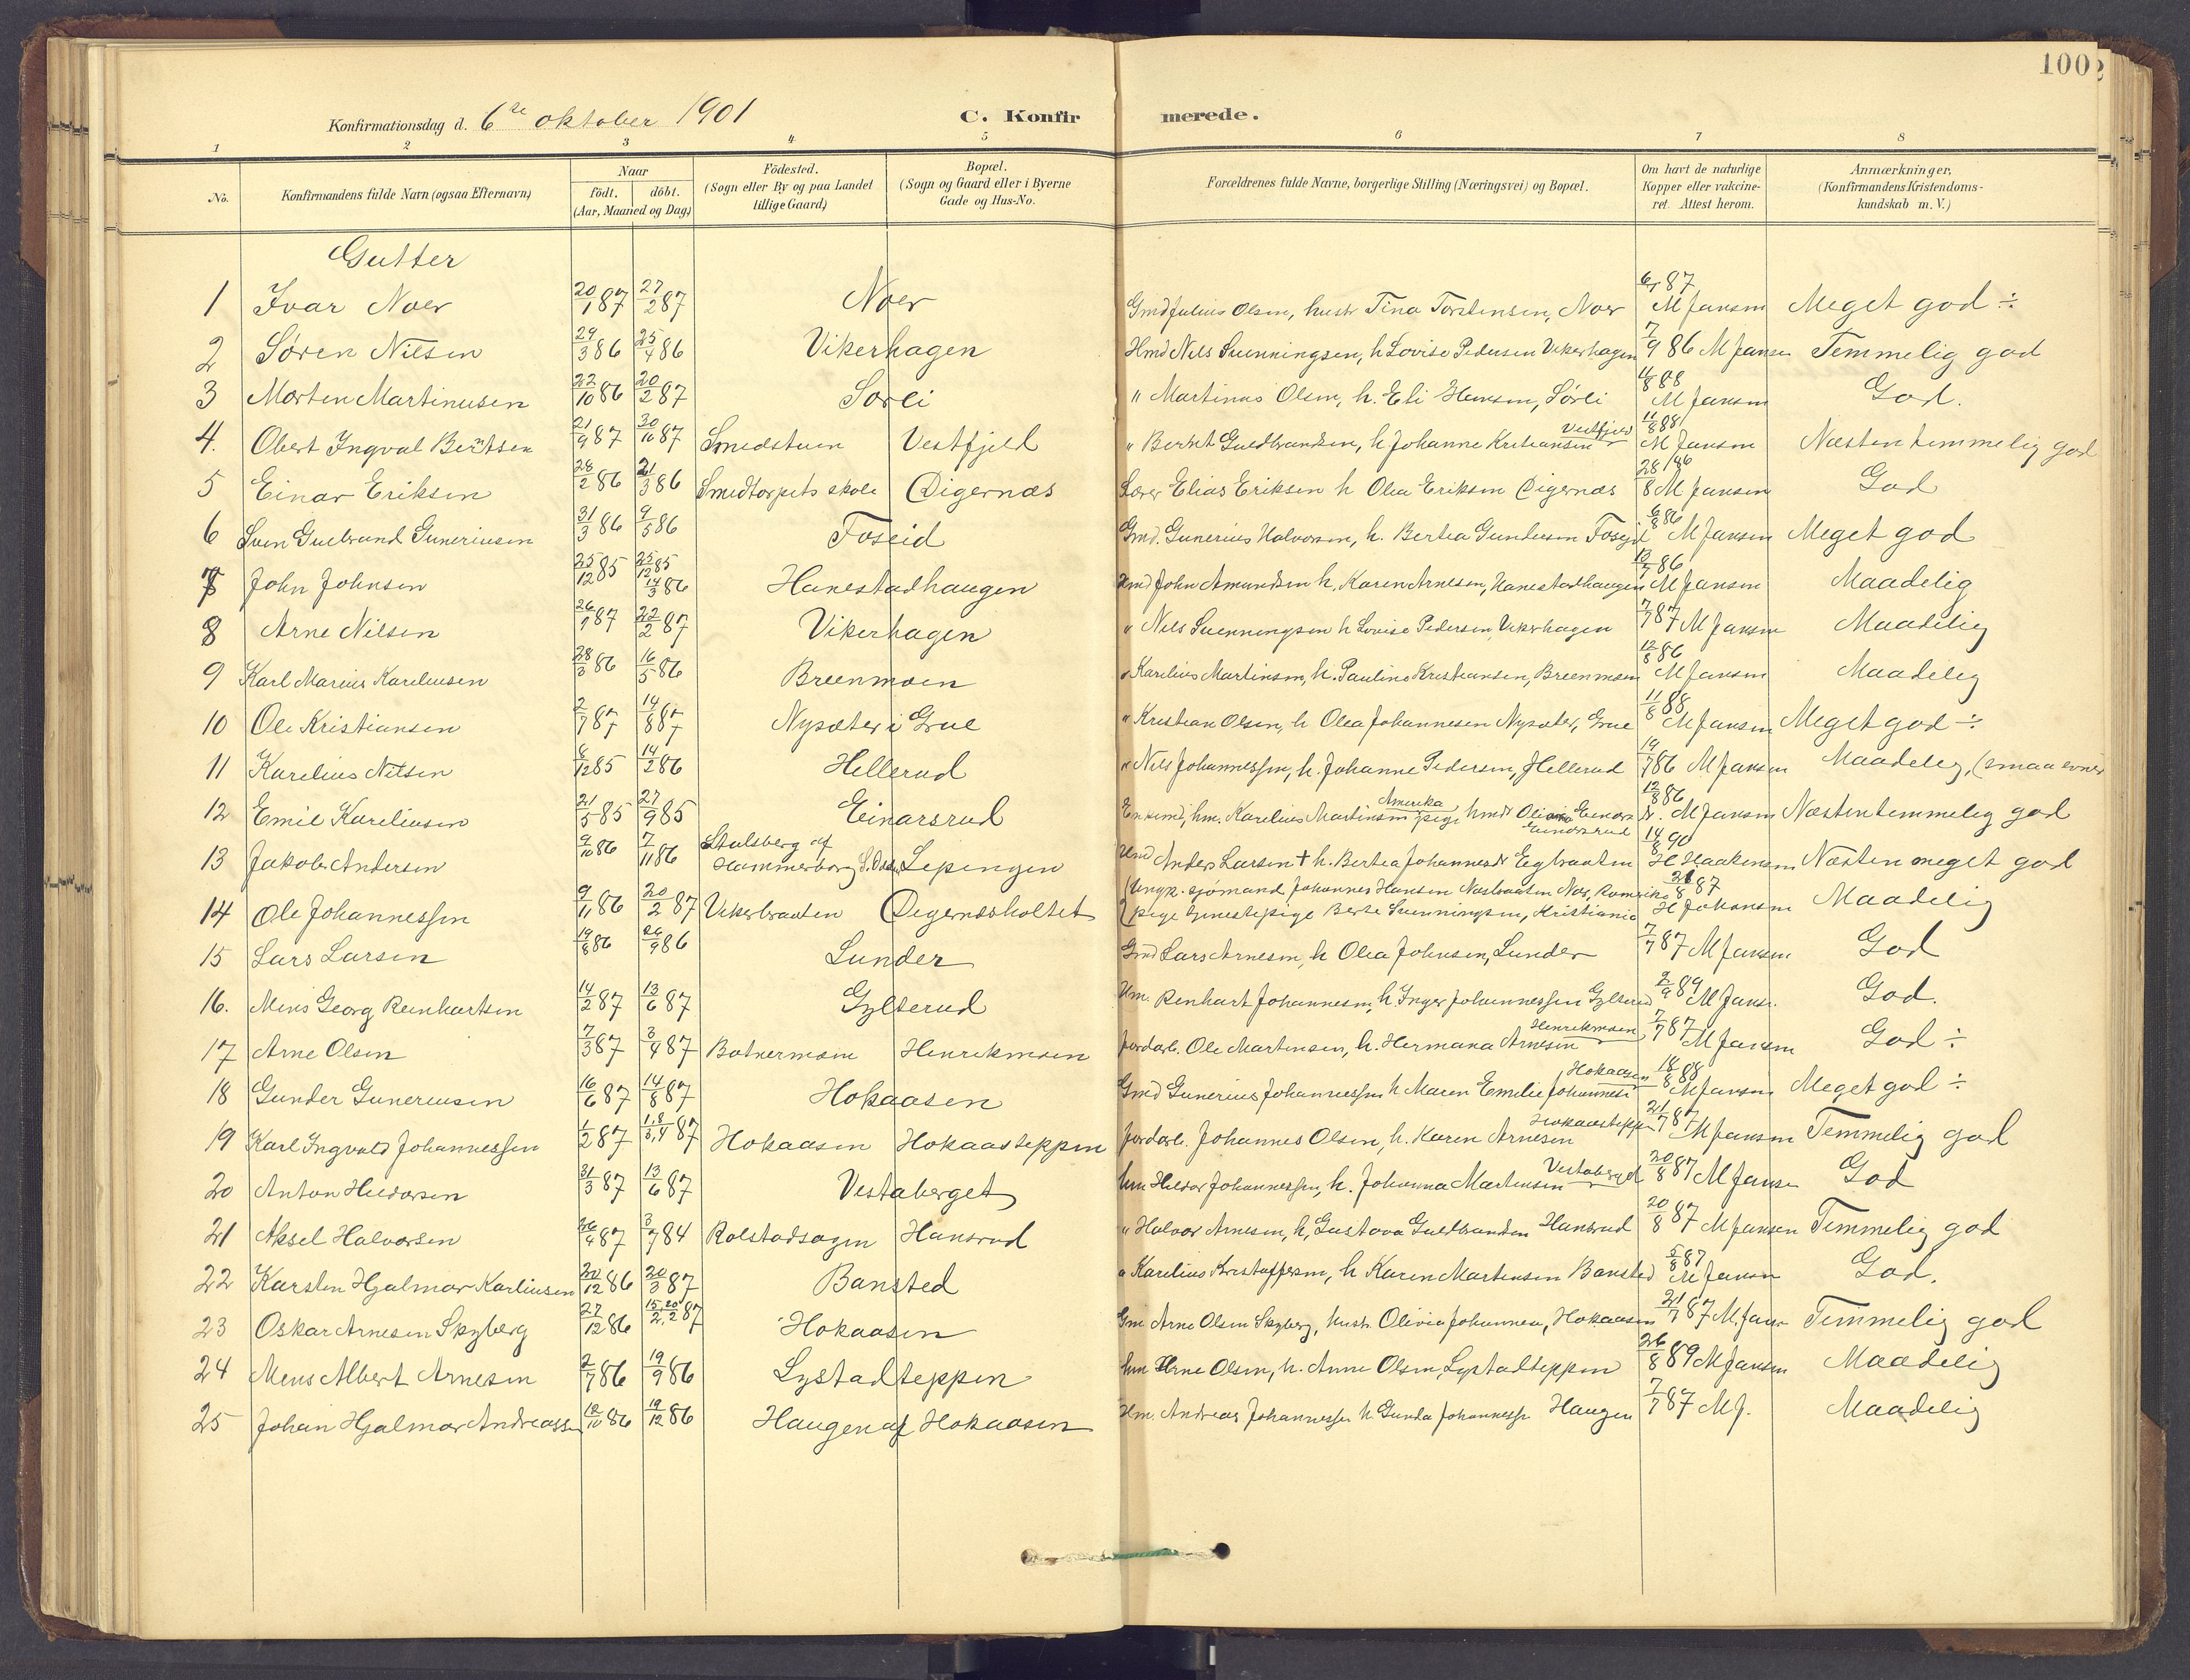 100
Konfirmationsdag d. 6te oktober 1901
C. Konfirmerede.
1 2 3 4 5 6 7 8
No. Konfirmandens fulde Navn (ogsaa Efternavn) Naar födt. döbt. (Aar, Maaned og Dag) Födested. (Sogn eller By og paa Landet tillige Gaard) Bopæl. (Sogn og Gaard eller i Byerne Gade og Hus-No. Forældrenes fulde Navne, borgerlige Stilling (Næringsvei) og Bopæl. Om havt de naturlige Kopper eller vakcineret. Attest herom. Anmærkninger, (Konfirmandens Kristendomskundskab m. V.)
Gutter
1 Ivar Noer 20/1 87 27/2 87 Noer Gmd Julius Olsen, hustr Tina Torstensen, Noer 87 M Jansen Meget god ÷
2 Søren Nilsen 29/3 86 25/4 86 Vikerhagen Hmd Nils Svenningsen, h Lovise Pedersen Vikerhagen 7/9 86 M Jansen Temmelig god
3 Morten Martinusen 22/10 86 20/2 87 Sørli " Martinus Olsen, h. Eli Hansen, Sørli 88 M Jansen God.
4. Obert Ingval Berntsen 21/9 87 30/10 87 Smedstuen Vestfjeld " Bernt Guldbrandsen, h. Johanne Kristiansen Vestfjeld 11/8 88 M Jansen Næsten temmelig god
5 Einar Eriksen 28/2 86 21/3 86 Smedtorpets skole Digernæs Lærer Elias Eriksen h Olea Eriksen Digernæs 28/8 86 M Jansen God
6 Sven Gulbrand Guneriusen 31/3 86 9/5 86 Foseid Gmd. Gunerius Halvorsen, h. Bertea Gundersen Foseid 6/8 86 M Jansen Meget god
7 John Johnsen 25/12 85 25/12 85 14/3 86 Hanestadhaugen Hmd John Amundsen h. Karen Arnesen, Hanestadhaugen 86 M Jansen Maadelig
8 Arne Nilsen 26/1 87 22/2 87 Vikerhagen " Nils Svenningsen h Lovise Pedersen Vikerhagen 7/7 87 M Jansen Maadelig
9 Karl Marius Kareliusen 28/3 86 16/5 86 Breenmoen " Karelius Martinsen, h. Pauline Kristiansen, Breenmoen 12/8 86 M Jansen Maadelig
10 Ole Kristiansen 2/7 87 14/8 87 Nysæter i Grue " Kristian Olsen, h Olea Johannesen Nysæter, Grue 11/8 88 M Jansen Meget god ÷
11 Karelius Nilsen 6/12 85 14/2 86 Hellerud " Nils Johannessen, h. Johanne Pedersen, Hellerud 19/7 86 M Jansen Maadelig, (smaa evner
12 Emil Kareliusen 21/5 85 27/9 85 Einarsrud hm. Karelius Martinsen Amerika pige Einarsrud 12/8 86 M Jansen Næsten temmelig god
13 Jakob Andersen 9/10 86 7/11 86 Stulsberg af Hammerborg S. Odalen Lepingen Hmd Anders Larsen † h. Bertea Johannesdr Egbraaten 14/8 90 H Haakensen Næsten meget god
14 Ole Johannessen 9/11 86 20/2 87 Vikerbraaten Digernæsholtet (Ungk. sjømand Johannes Hansen Næsbraaten Nes, Romerike pige tjenestepige Berte Svenningsen, Kristiania 21/8 87 H Johansen Maadelig
15 Lars Larsen 19/8 86 26/9 86 Lunder Gmd Lars Arnesen, h Olea Johnsen, Lunder 7/7 87 M Jansen God
16. Mens Georg Reinhartsen 14/2 87 13/6 87 Gylterud Hm. Reinhart Johannesen, h. Inger Johannessen Gylterud 2/9 89 M Jans. God.
17 Arne Olsen 7/3 87 3/4 87 Botnermoen Henrikmoen Jordarb. Ole Martinsen, h. Hermana Arnesen Henrikmoen 7/7 87 M Jansen God ÷
18 Gunder Guneriusen 16/6 87 14/8 87 Hokaasen Gmd Gunerius Johannessen h Maren Emilie Johannesd Hokaasen 18/8 88 M Jansen Meget god ÷
19 Karl Ingvald Johannessen 1/2 87 87 Hokaasen Hokaasteppen Jordarb. Johannes Olsen, h. Karen Arnesen Hokaasteppen 21/7 87 M Jansen Temmelig god
20 Anton Hildorsen 31/3 87 13/6 87 Vestaberget hm Hildor Johannessen, h. Johanna Martinsen Vestaberget 20/8 87 M Jansen God
21 Aksel Halvorsen 26/4 87 3/7 84 Rolstadsagen Hansrud " Halvor Arnesen, h, Gustava Guldbrandsen Hansrud 20/8 87 M Jansen Temmelig god
22 Karsten Hjalmar Karliusen 20/12 86 20/3 87 Bansted " Karelius Kristoffersen, h Karen Martinsen Bansted 5/8 87 M Jansen God.
23 Oskar Arnesen Skyberg 27/12 86 15/2, 20/2 87 Hokaasen Gm Arne Olsen Skyberg, hustr. Olivia Johannea, Hokaasen 21/7 87 M. Jans Temmelig god
24 Mens Albert Arnesen 2/7 86 19/9 86 Lystadteppen hm Arne Olsen, h. Anne Olsen, Lystadteppen 26/8 89 M Jansen Maadelig
25 Johan Hjalmar Andreassen 12/10 86 19/12 86 Haugen af Hokaasen Hm. Andreas Johannessen h. Gunda Johannessen Haugen 7/7 87 M J. Maadelig